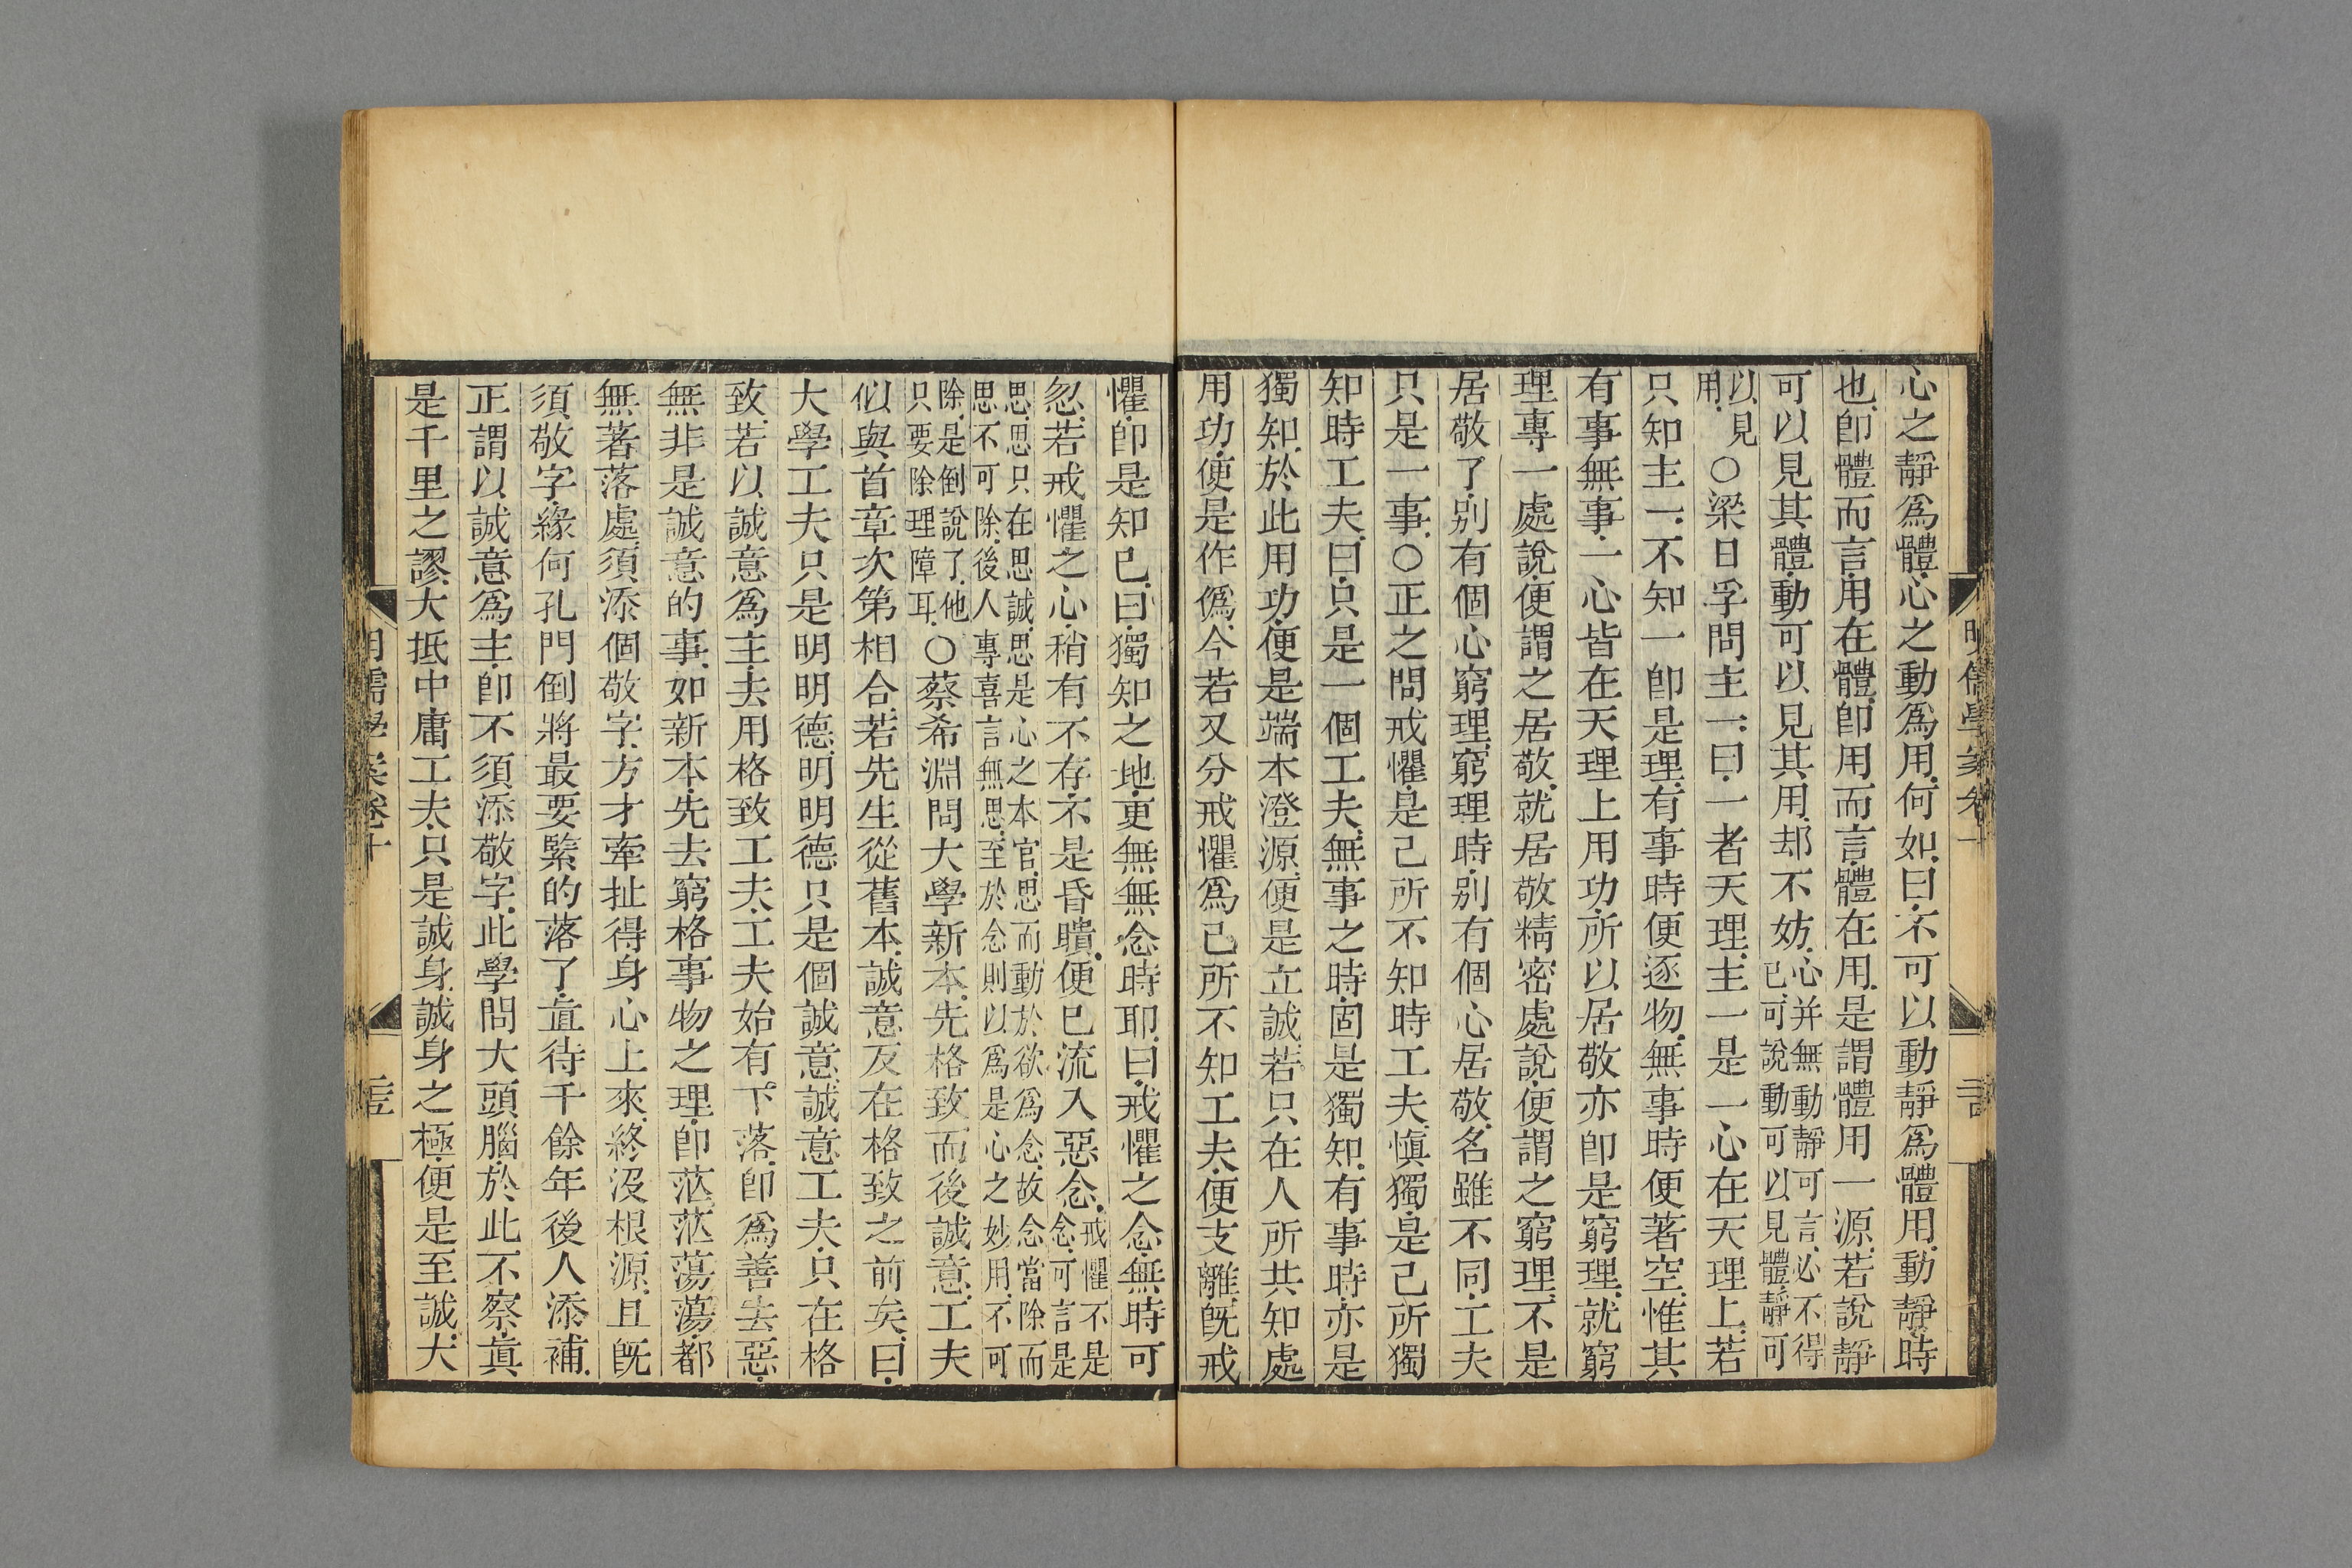 心之靜爲體心之動爲用何如曰不可以動靜爲體用動靜時
也卽體而言用在體卽用而言體在用是謂體用一源若說靜
可以見其體動可以見其用却不妨心并無動靜可言必不得
已可說動可以見體靜可
以見
用○梁日孚問主一曰一者天理主一是一心在天理上若
只知主一不知一卽是理有事時便逐物無事時便著空惟其
有事無事一心皆在天理上用功所以居敬亦卽是窮理就窮
理專一處說便謂之居敬就居敬精密處說便謂之窮理不是
居敬了别有個心窮理窮理時别有個心居敬名雖不同工夫
只是一事○正之問戒懼是己所不知時工夫愼獨是己所獨
知時工夫曰只是一個工夫無事之時固是獨知有事時亦是
獨知於此用功便是端本澄源便是立誠若只在人所共知處
用功便是作僞今若又分戒懼爲己所不知工夫便支離旣戒
懼卽是知已曰獨知之地更無無念時耶曰戒懼之念無時可
忽若戒懼之心稍有不存不是昏瞶便已流入惡念戒懼不是
念可言是
思思只在思誠思是心之本官思而動於欲爲念故念當除而
思不可除後人專喜言無思至於念則以爲是心之妙用不可
除是倒說了他
只要除理障耳○蔡希淵問大學新本先格致而後誠意工夫
似與首章次第相合若先生從舊本誠意反在格致之前矣曰
大學工夫只是明明德明明德只是個誠意誠意工夫只在格
致若以誠意爲主去用格致工夫工夫始有下落卽爲善去惡
無非是誠意的事如新本先去窮格事物之理卽茫茫蕩蕩都
無著落處須添個敬字方才牽扯得身心上來終沒根源且旣
須敬字緣何孔門倒將最要緊的落了直待千餘年後人添補
正謂以誠意爲主卽不須添敬字此學問大頭腦於此不察眞
是千里之謬大抵中庸工夫只是誠身誠身之極便是至誠大
明儒學案卷十